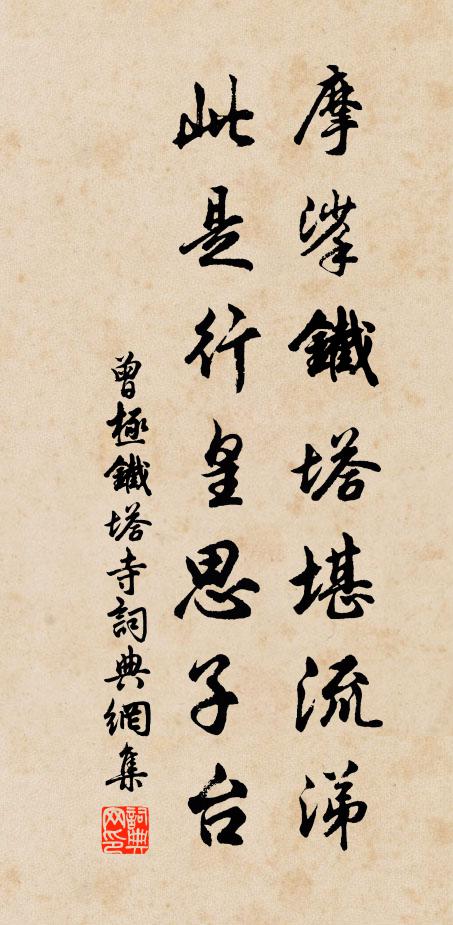 摩挲鐵塔堪流涕
此是行皇思子台
曾極鐵塔寺詞典網集
詞典網印